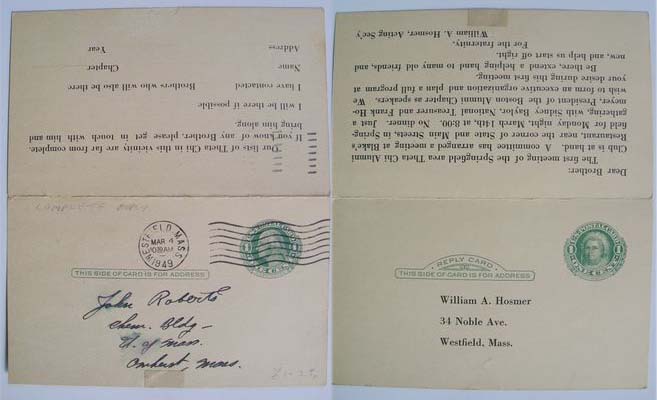 Our lists of Theta Chi in this vicinity are far from complete.
If you know of any brother, please get in touch with him and
bring him along.
I will be there if possible
I have contacted Brothers who will also be there
Name Chapter
Address Year
COMPLETE
WESTFIELD, MASS.
MAR 4
1949
THIS SIDE OF CARD IS FOR ADDRESS
John Roberts
Chem. Bldg -
U. of Mass.
Amherst, Mass.
Dear Brother:
The first meeting of the Springfield area Theta Chi Alumni
Club is at hand. A committee has arranged a meeting at Blake's
Restaurant, near the corner of State and Main Streets, in Spring-
field for Monday night March 14th, at 8:00. No dinner. Just a
gathering, with Sidney Baylor, National Treasurer and Frank Ho-
meyer, President of the Boston Alumni Chapter as speakers. We
wish to form an executive organization and plan a full program at
your desire during this first meeting.
Be there, extend a helping hand to many old friends, and
new, and help us start off right.
For the fraternity,
William A. Hosmer, Acting Sec'y
REPLY CARD
THIS SIDE OF CARD IS FOR ADDRESS
William A. Hosmer
34 Noble Ave.
Westfield, Mass.